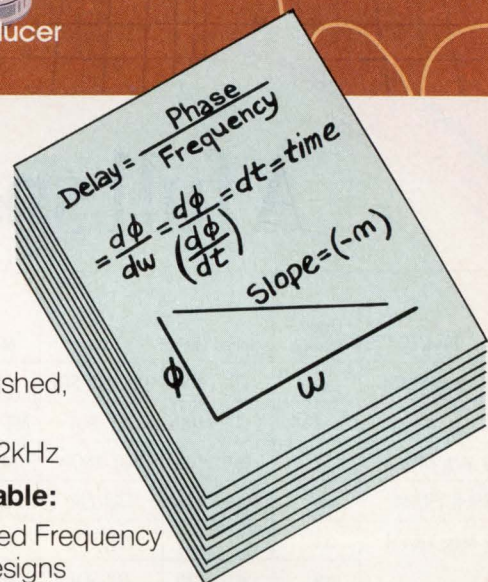 ucer
Delay = Phase / Frequency
= dφ/dw = dφ/(dφ/dt) = dt = time
Slope = (-m)
φ
ω
shed,
2kHz
able:
ed Frequency
esigns